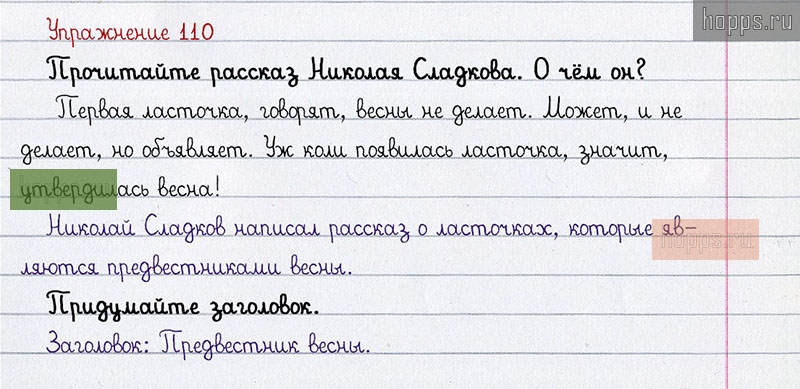 hopps.ru
Упражнение 110
Прочитайте рассказ Николая Сладкова. О чём он?
Первая ласточка, говорят, весны не делает. Может, и не
делает, но объявляет. Уж коли появилась ласточка, значит,
утвердилась весна!
Николай Сладков написал рассказ о ласточках, которые яв-
hopps.ru
ляются предвестниками весны.
Придумайте заголовок.
Заголовок: Предвестник весны.